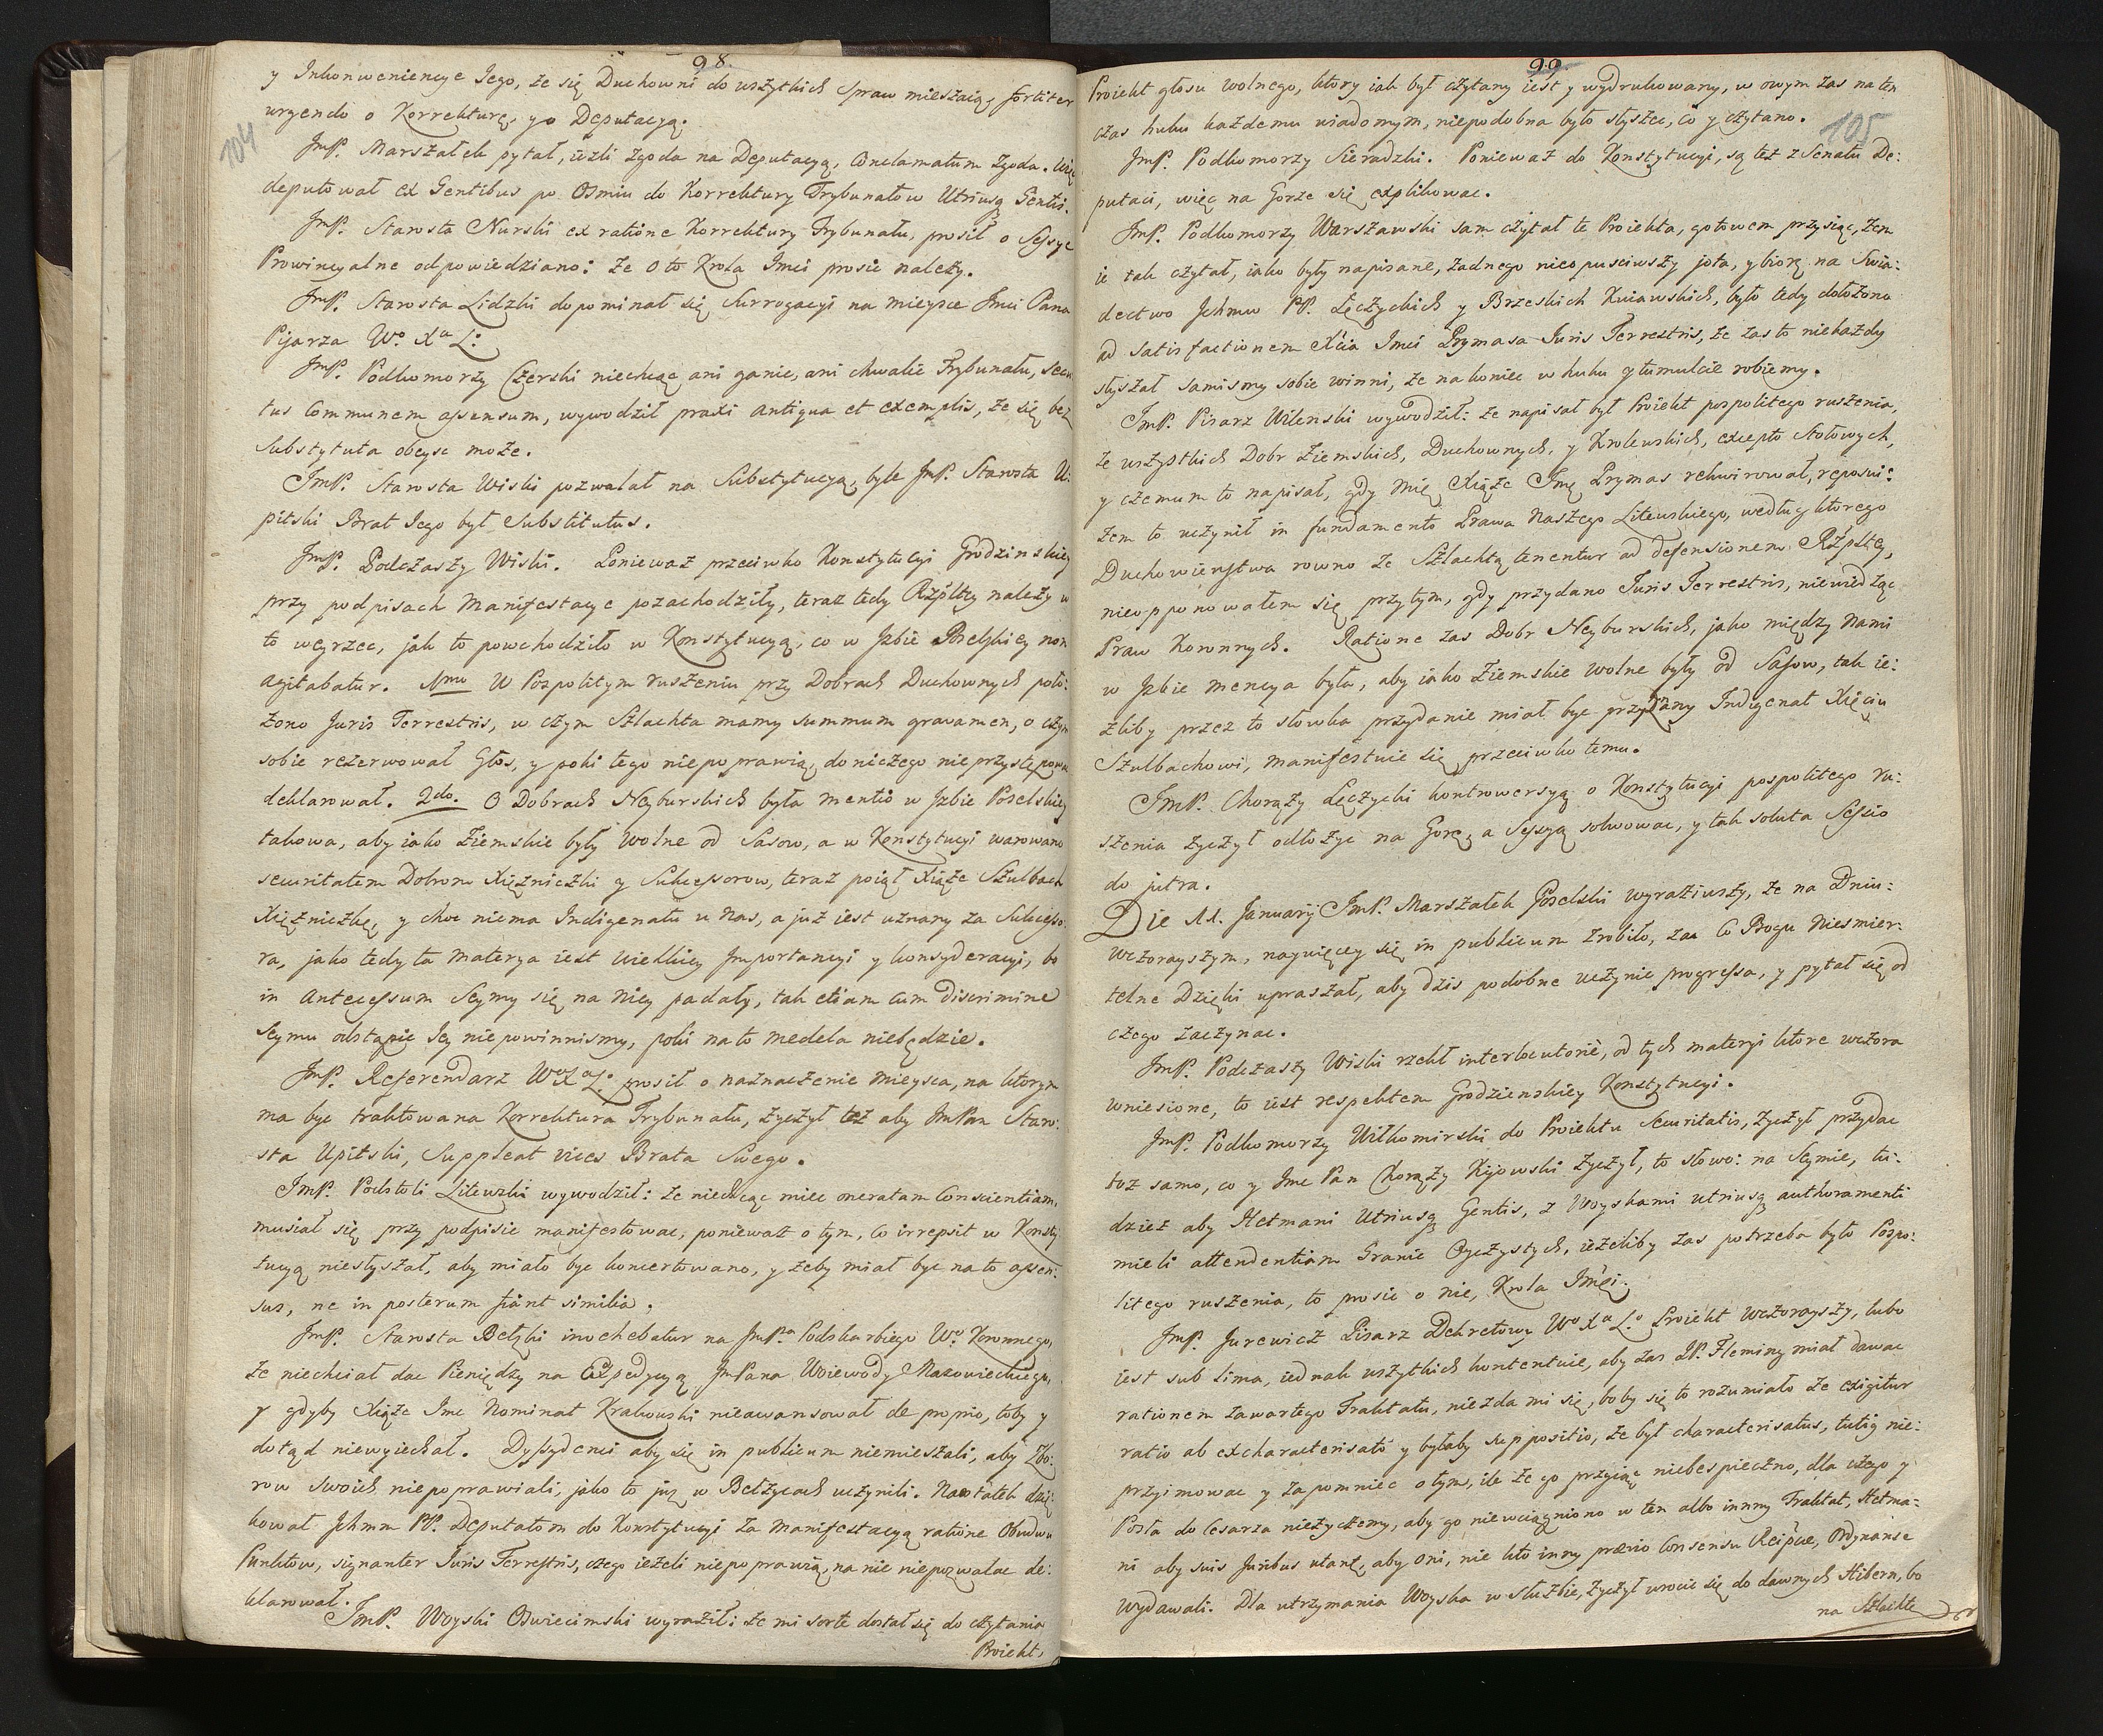 98.
104
y Inkonwenience Jego, że się Duchowni do wszytkich spraw mieszaią, fortiter
urgendo o Korrekturę, y o Deputacyą.
JmP. Marszałek pytał, iezli Zgoda na Deputacyą, Conclamatum Zgoda.
deputował ex Gentibus po Osmiu do Korrektury Trybunałow Utriusq Gentis.
JmP. Starosta Nurski ex ratione Korrektury Trybunału, prosił o Sessye
Prowincyalne odpowiedziano: że o to Krola Jmci prosic należy.
JmP. Starosta Lidzki dopominał się Surrogacyi na mieysce Jmci Pana
Pisarza Wo Xa L:
JmP. Podkomorzy Czerski niechcąc ani ganic, ani chwalic Trybunału, secu
tus Communem assensum, wywodził praxi antiqua et exemplis, że się bez
Substytuta obeysc może.
JmP. Starosta Wiski pozwalał na Substytucyą, byle JmP. Starosta U:
pitski Brat Jego był Substitutus.
JmP. Podczaszy Wiski. Ponieważ przeciwko Konstytucyi Grodzinskiey
przy podpisach Manifestacye pozachodziły, teraz tedy Rzpltey należy w
to weyrzec, jak to powchodziło w Konstytucyą, co w Jzbie Poselskiey non
agitabatur. 1mo W Pospolitym ruszeniu przy Dobrach Duchownych poło:
żono Juris Terrestris, w czym Szlachta mamy summum gravamen, o czym
sobie rezerwował Głos, y poki tego niepoprawią, do niczego nieprzystępowac
deklarował. 2do. O Dobrach Neyburskich była mentio w Jzbie Poselskiey
takowa, aby iako Ziemskie były wolne od Sasow, a w Konstytucyi warowano
securitatem Dobrom Xiężniczki y Sukcessorow, teraz poiął Xiąże Szulbach
Xiężniczkę, y choc niema Indigenatu u nas, a już iest uznany za Sukcesso:
ra, jako tedy ta materya iest wielkiey Importancyi y konsyderacyi, bo
in antecessum Seymy się na niey padały, tak etiam cum discrimine
Seymu odstąpic Jey niepowinnismy, poki na to medela niebędzie.
JmP. Referendarz Wo Xa Lo prosił o naznaczenie mieysca, na ktorym
ma byc traktowana Korrektura Trybunału, życzył też aby JmPan Staro:
sta Upitski, Suppleat vices Brata Swego.
JmP. Podstoli Litewski wywodził: że niechcąc miec oneratam Conscientiam,
musiał się przy podpisie manifestowac, ponieważ o tym, co irrepsit w Konsty
tucyą niesłyszał, aby miało byc koncertowano, y żeby miał byc na to assen:
sus, ne in posterum fiant similia.
JmP. Starosta Bełzki invehebatur na JmPa Podskarbiego Wo Koronnego,
że niechciał dac Pieniędzy na Expedycyą JmPana Woiewody Mazowieckiego,
y gdyby Xiąże Jmc Nominat Krakowski nieawansował de proprio, toby y
dotąd niewyiechał. Dyssydenci aby się in publicum niemieszali, aby Zbo:
row swoich niepoprawiali, jako to już w Bełżycach uczynili. Naostatek dzię:
kował Jchmm PP. Deputatom do Konstytucyi za Manifestacyą ratione Obudwu
Punktow, signanter Juris Terrestris, czego ieżeli niepoprawią, na nic niepozwalac de:
klarował.
JmP. Woyski Oswiecimski wyraził: że mi sorte dostał się do czytania
Proiekt,
99.
105
Proiekt głosu wolnego, ktory iak był czytany iest y wydrukowany, w owym zas na ten
czas huku każdemu wiadomym, niepodobna było słyszec, co y czytano.
JmP. Podkomorzy Sieradzki. Ponieważ do Konstytucyi, są też z Senatu De:
putaci, więc na Gorze się explikowac.
JmP. Podkomorzy Warszawski sam czytał te Proiekta, gotowem przysiąc, żem
ie tak czytał, iako były napisane, żadnego nieopusciwszy jota, y biorę na Swia:
dectwo Jchmm PP. Łęczyckich y Brzeskich Kuiawskich, było tedy dołożono
ad satisfactionem Xcia Jmci Prymasa Juris Terrestris, że zas to niekażdy
słyszał samismy sobie winni, że nakoniec w huku y tumulcie robiemy.
JmP. Pisarz Wilenski wywodził: że napisał był Proiekt pospolitego ruszenia,
ze wszystkich Dobr Ziemskich, Duchownych, y Krolewskich, excepto stołowych,
y czemum to napisał, gdy mię Xiąże Jmę Prymas rekwirował, reposui:
żem to uczynił in fundamento Prawa Naszego Litewskiego, według ktorego
Duchowienstwa rowno ze Szlachtą tenentur ad defensionem Rzpltey,
nieopponowałem się przytym, gdy przydano Juris Terrestris, niewiedząc
Praw Koronnych. Ratione zas Dobr Neyburskich, jako między nami
w Jzbie mencya była, aby iako Ziemskie wolne były od Sasow, tak ie:
żliby przez to słowka przydanie miał byc przyznany Indigenat Xięciu
Szulbachowi, manifestuie się przeciwko temu.
JmP. Chorąży Łęczycki kontrowersyą o Konstytucyi pospolitego ru:
szenia życzył odłożyc na Gorę, a Sessyą solwowac, y tak soluta Sessio
do jutra.
Die 11. Januarij JmP. Marszałek Poselski wyraziwszy, że na Dniu:
wczorayszym, naywięcey się in publicum zrobiło, zaa co Bogu niesmier:
telne Dzięki upraszał, aby dzis podobne uczynic progressa, y pytał się od
czego zaczynac.
JmP. Podczaszy Wiski rzekł interlocutorie, od tych materyi ktore wczora
wniesione, to iest respektem Grodzienskiey Konstytucyi.
JmP. Podkomorzy Wiłkomirski do Proiektu Securitatis, życzył przydac
toż samo, co y Jmc Pan Chorąży Kijowski życzył, to słowo: na Seymie, tu:
dzież aby Hetmani Utriusq Gentis, z Woyskami utriusq authoramenti
mieli attendentiam Granic Oyczystych, ieżeliby zas potrzeba było Pospo:
litego ruszenia, to prosic o nie, Krola Jmci.
JmP. Jurewicz Pisarz Dekretowy Wo Xa Lo Proiekt wczorayszy, lubo
iest sub lima, iednak wszytkich kontentuie, aby zas JP. Fleming miał dawac
rationem zawartego Traktatu, niezda mi się, bo by się to rozumiało że exigitur
ratio ab excharacterisato y byłaby suppositio, że był characterisatus, tutiq nie:
przyimowac y zapomniec o tym, ile że go przyiąc niebespieczno, dla czego y
Posła do Cesarza nieżyczemy, aby go niewciągniono w ten albo innny Traktat, Hetma:
ni aby suis Juribus utant, aby oni, nie kto inny prævio Consensu Reipcæ, Ordynanse
wydawali. Dla utrzymania Woyska w służbie, życzył wrocic się do dawnych Hibern, bo
na Szlachtę